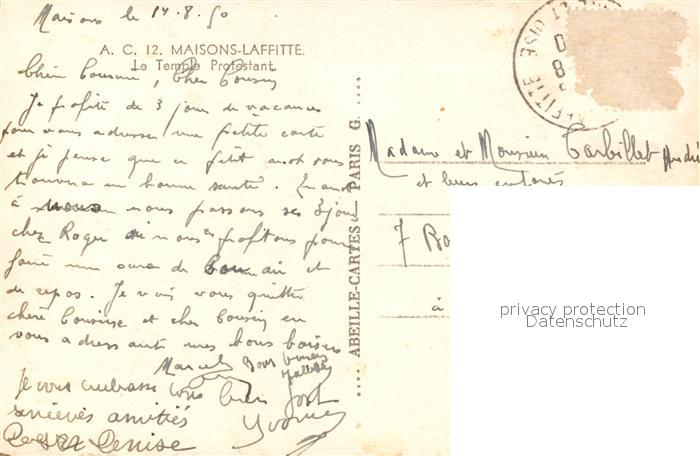 Maisons le 14.8.50
A. C. 12. MAISONS-LAFFITTE.
Le Temple Protestant.
Chère Cousine, Cher Cousin
Je profite de 3 jours de vacances
pour vous adresser une petite carte
et je pense que ce petit mot vous
trouvera en bonne santé. Quant
à nous passons ses 3 jours
chez Roger nous en profitons pour
faire une cure de bon air et
de repos. Je vais vous quitter
chère Cousine et cher Cousin en
vous adressant mes bons baisers
Marcel
Bons baisers
Je vous embrasse tous bien fort
Yvonne
sincères amitiés
Roger Denise
ABEILLE-CARTES PARIS G.
LAFFITTE OISE
Madame et Monsieur Tarbillet André
et leurs enfants
7
à
privacy protection
Datenschutz